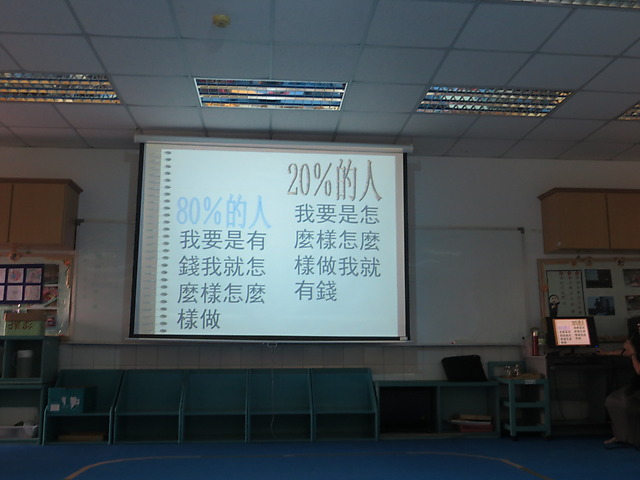 80%的人
我要是有
錢我就怎
麼樣怎麼
樣做
20%的人
我要是怎
麼樣怎麼
樣做我就
有錢